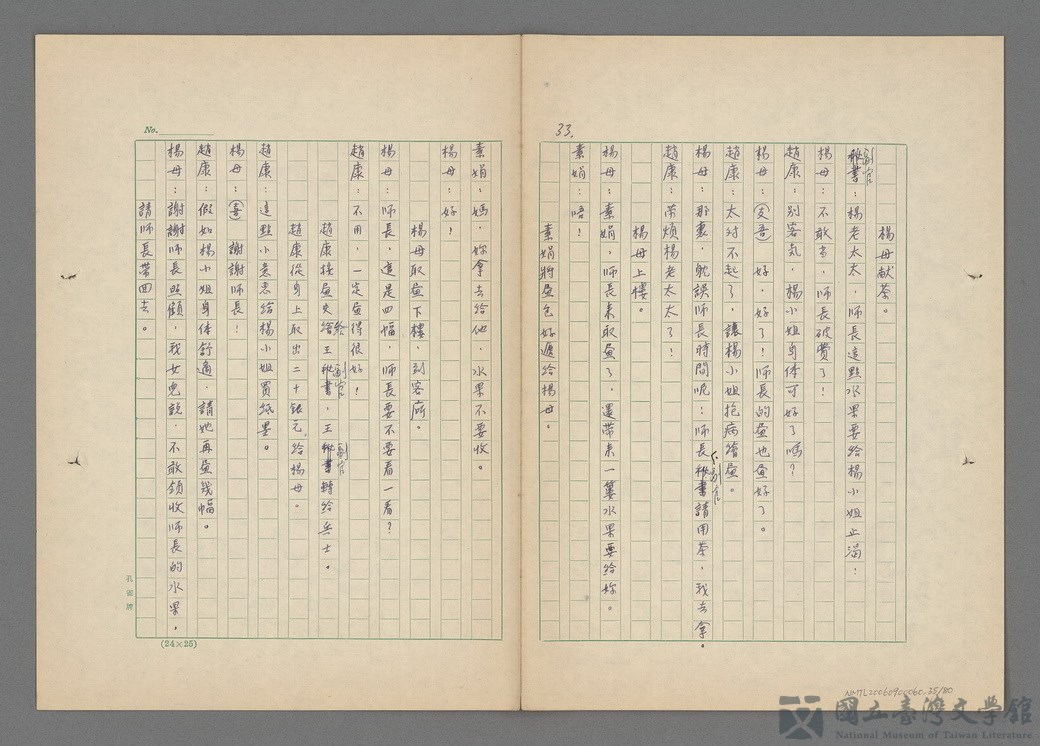 33.
楊母献茶。
副官
秘書：楊老太太，師長這點水果要給楊小姐止渴！
楊母：不敢当，師長破費了！
趙康：別客气，楊小姐身体可好了嗎？
楊母：(支吾) 好，好了！師長的畫也畫好了。
趙康：太对不起了，讓楊小姐抱病繪畫。
楊母：那裏，躭誤師長時間呢！師長、副官秘書請用茶，我去拿。
趙康：帶煩楊老太太了！
楊母上樓。
楊母：素娟，師長來取畫了，還帶來一簍水果要給妳。
素娟：唔！
素娟將畫包好遞給楊母。
No.
素娟：媽，妳拿去給他，水果不要收。
楊母：好！
楊母取畫下樓，到客廳。
楊母：師長，這是四幅，師長要不要看一看？
趙康：不用，一定畫得很好！
趙康接畫交繪給王秘書副官，王秘書副官轉給兵士。
趙康從身上取出二十銀元，給楊母。
趙康：這點小意思給楊小姐買紙墨。
楊母：(喜) 謝謝師長！
趙康：假如楊小姐身体舒適，請她再畫幾幅。
楊母：謝謝師長照顧，我女兒說，不敢領收師長的水果，
請師長帶回去。
孔雀牌
(24×25)
NMTL20060900060_35/80
國立臺灣文學館
National Museum of Taiwan Literature